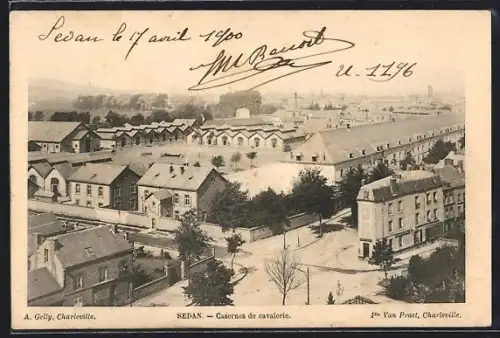 Sedan le 17 avril 1900
JM Benoist
u. 1796
A. Gelly, Charleville.
SEDAN. — Casernes de cavalerie.
Pte Van Praet, Charleville.